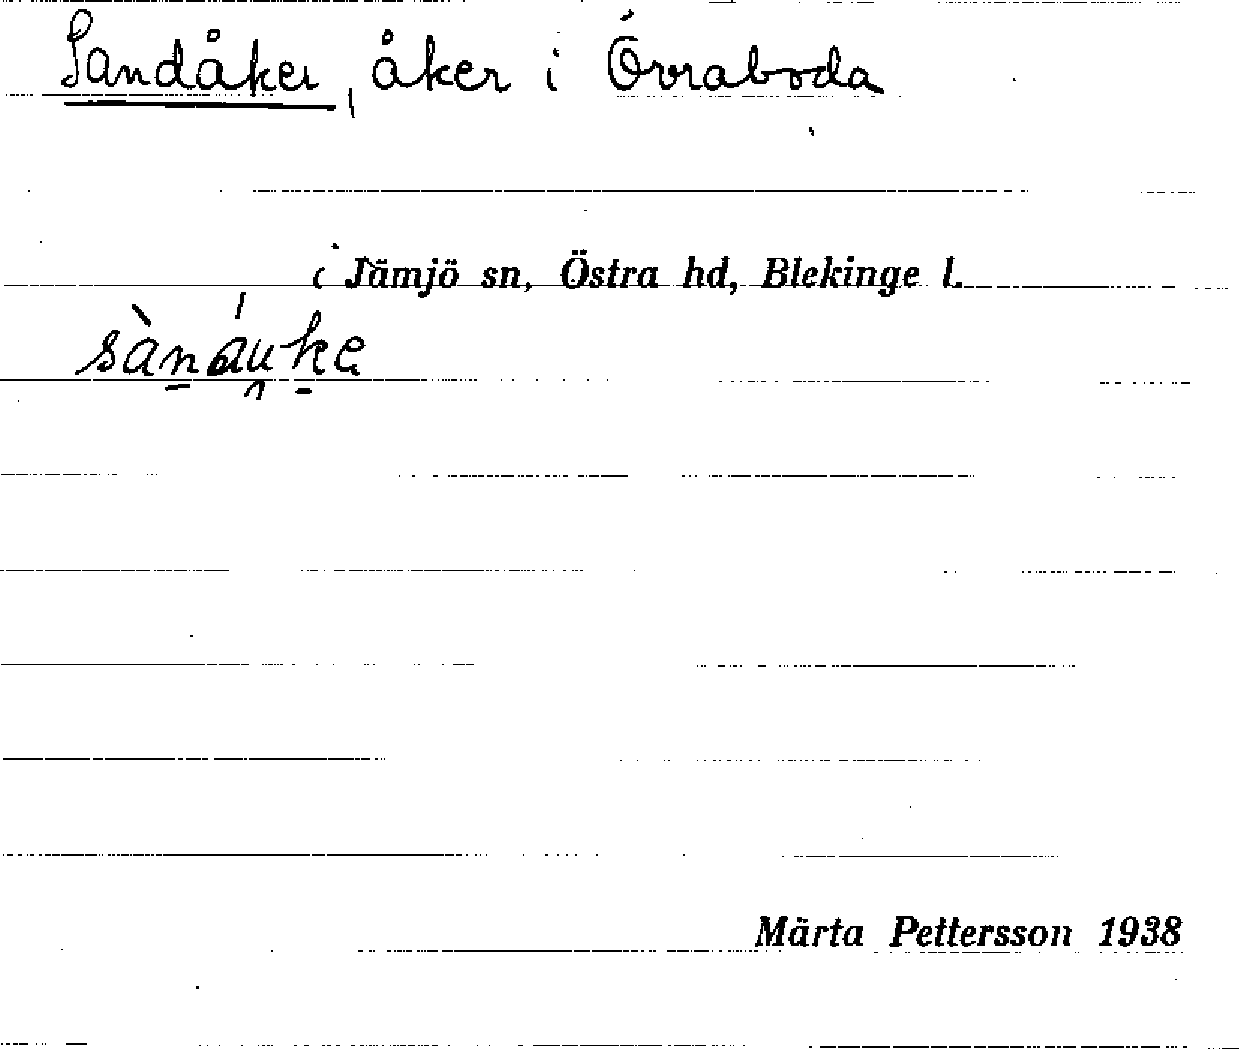 Sandåker, åker i Övraboda
i Jämjö sn, Östra hd, Blekinge l.
sànáu̯ke
Märta Pettersson 1938